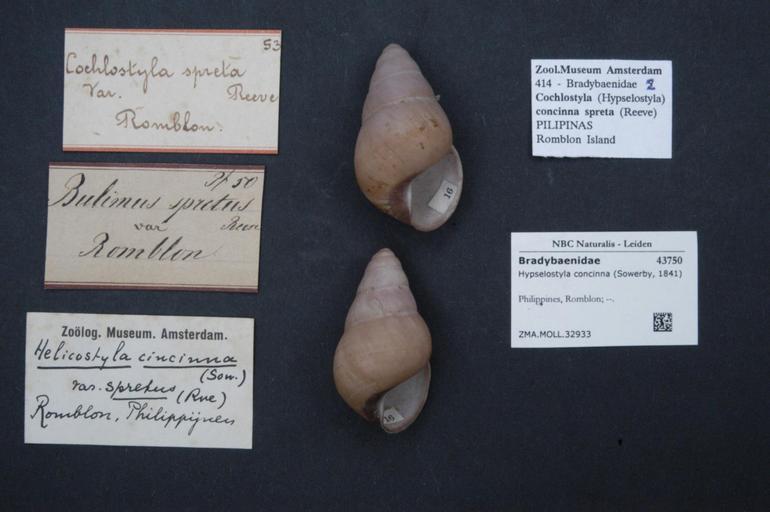 53
Cochlostyla spreta
Var. Reeve
Romblon.
Pf 50
Bulimus spretus
var Reeve
Romblon
Zoölog. Museum. Amsterdam.
Helicostyla cincinna
(Sow.)
var. spretus (Rve)
Romblon, Philippijnen
16
16
Zool.Museum Amsterdam
414 - Bradybaenidae 2
Cochlostyla (Hypselostyla)
concinna spreta (Reeve)
PILIPINAS
Romblon Island
NBC Naturalis - Leiden
Bradybaenidae 43750
Hypselostyla concinna (Sowerby, 1841)
Philippines, Romblon; --.
ZMA.MOLL.32933